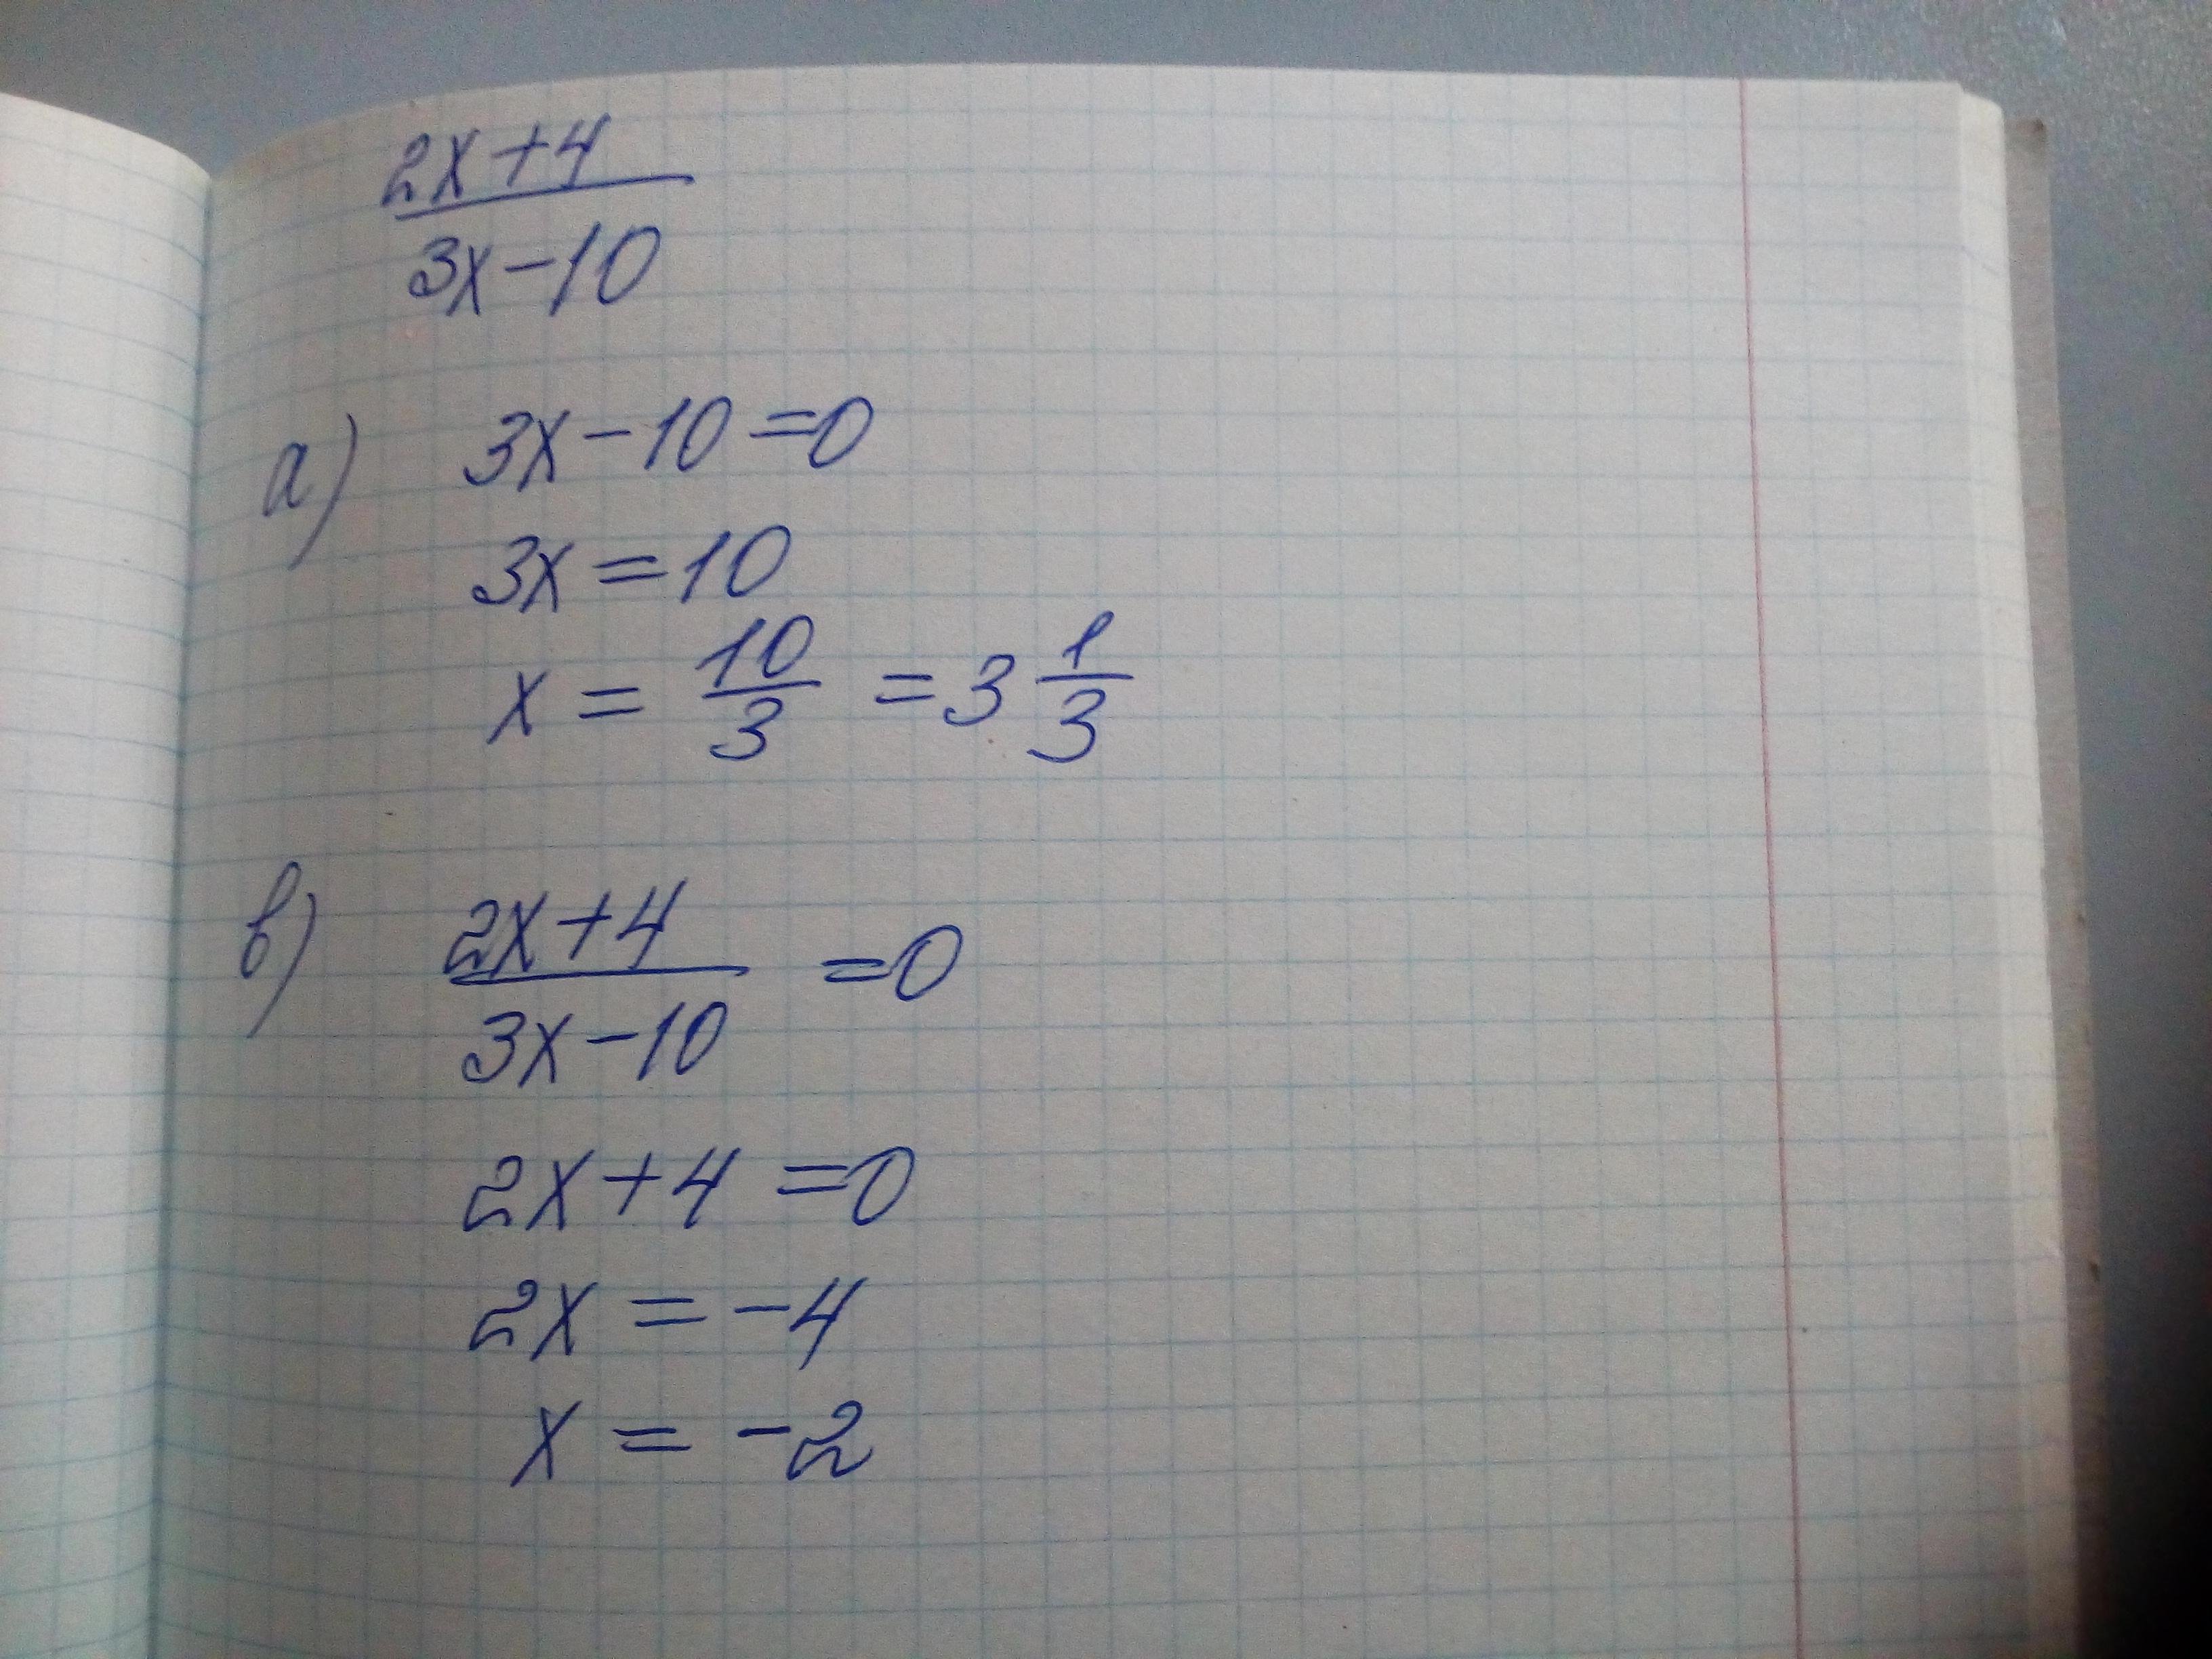 2x+4
3x-10
а) 3x-10=0
3x=10
x = 10/3 = 3 1/3
в) 2x+4 / 3x-10 =0
2x+4=0
2x=-4
x=-2